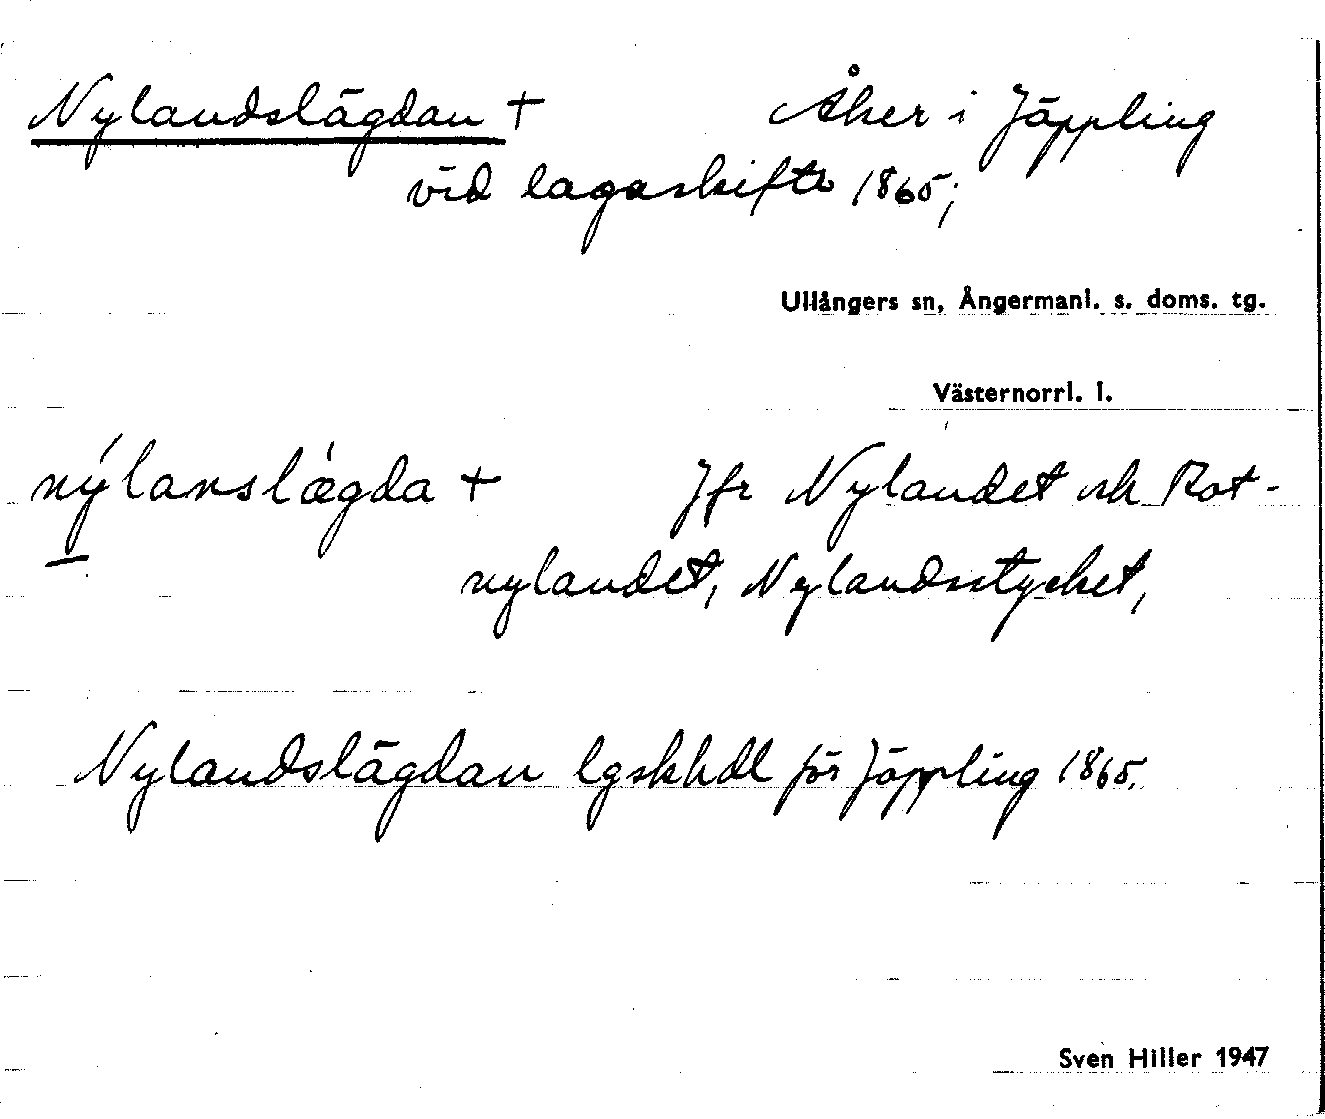 Nylandslägdan + Åker i Jäppling
vid lagaskifte 1865;
Ullångers sn, Ångermanl. s. doms. tg.
Västernorrl. l.
nýlanslǻgda + Jfr Nylandet och Rot-
nylandet, Nylandsstycket,
Nylandslägdan lgskhdl för Jäppling 1865.
Sven Hiller 1947